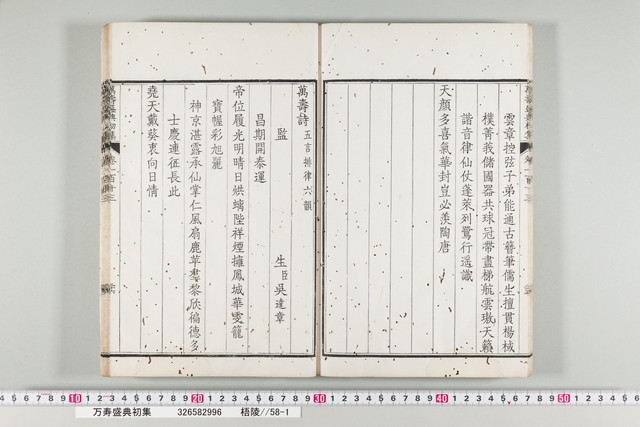 雲章控弦子弟能通古簪筆儒生擅貫楊棫
樸菁莪儲國器共球冠帶盡梯航雲璈天籟
諧音律仙仗蓬萊列鷺行遥識
天顔多喜氣華封豈必羨陶唐
萬壽詩五言排律六韻
監生臣吳達章
昌期開泰運
帝位履光明晴日烘螭陛祥煙擁鳳城華雲籠
寳幄彩旭麗
神京湛露承仙掌仁風扇鹿苹羣黎欣徧德多
士慶連征長此
堯天戴葵衷向日情
万寿盛典初集 326582996 梧陵//58-1